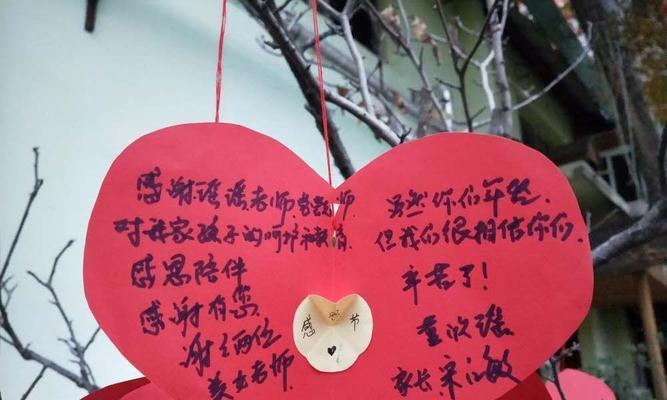 感谢瑶瑶老师 老师
对我家孩子的呵护和教育
感恩陪伴
感谢有您
谢谢两位
美女老师
虽然你们年轻
但我们很相信你们
辛苦了！
家长
感 节